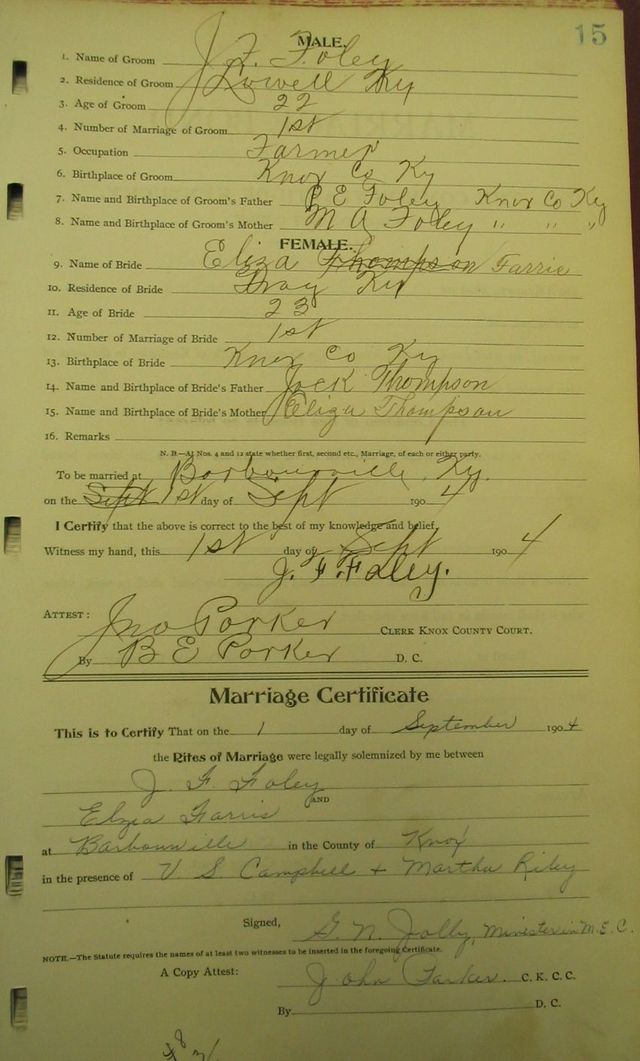 15
MALE.
1. Name of Groom J. F. Foley
2. Residence of Groom Lowell Ky
3. Age of Groom 22
4. Number of Marriage of Groom 1st
5. Occupation Farmer
6. Birthplace of Groom Knox Co Ky
7. Name and Birthplace of Groom's Father E Foley Knox Co Ky
8. Name and Birthplace of Groom's Mother M A Foley " " "
FEMALE.
9. Name of Bride Eliza Thompson Farris
10. Residence of Bride Gray Ky
11. Age of Bride 23
12. Number of Marriage of Bride 1st
13. Birthplace of Bride Knox Co Ky
14. Name and Birthplace of Bride's Father Jack Thompson
15. Name and Birthplace of Bride's Mother Eliza Thompson
16. Remarks
N. B.—At Nos. 4 and 12 state whether first, second etc., Marriage, of each or either party.
To be married at Barbourville, Ky.
on the Sept 1st day of Sept 1904
I Certify that the above is correct to the best of my knowledge and belief.
Witness my hand, this 1st day of Sept 1904
J. F. Foley.
ATTEST: Jno Parker CLERK KNOX COUNTY COURT.
By B E Parker D. C.
Marriage Certificate
This is to Certify That on the 1 day of September 1904
the Rites of Marriage were legally solemnized by me between
J. F. Foley
AND
Elzia Farris
at Barbourville in the County of Knox
in the presence of V S Campbell + Martha Riley
Signed, G. N. Jolly, Minister in M. E. C.
NOTE.—The Statute requires the names of at least two witnesses to be inserted in the foregoing Certificate.
A Copy Attest: John Parker. C. K. C. C.
By D. C.